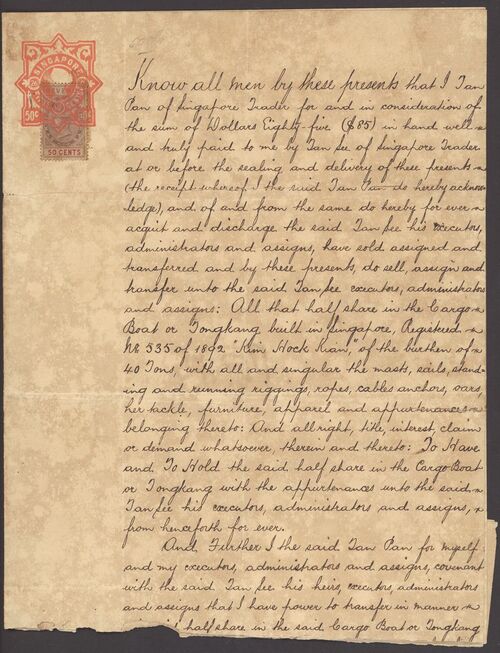 SINGAPORE
50c
50c
50 CENTS
Know all men by these presents that I Tan
Pan of Singapore Trader for and in consideration of
the sum of Dollars Eighty-five ($85) in hand well
and truly paid to me by Tan See of Singapore Trader
at or before the sealing and delivery of these presents
(the receipt whereof I the said Tan Pan do hereby acknow
ledge), and of and from the same do hereby for ever
acquit and discharge the said Tan See his executors,
administrators and assigns, have sold assigned and
transferred and by these presents, do sell, assign and
transfer unto the said Tan See executors, administrators
and assigns: All that half share in the Cargo
Boat or Tongkang built in Singapore, Registered
No 535 of 1892 "Kim Hock Kian," of the burthen of
40 Tons, with all and singular the masts, sails, stand
ing and running riggings, ropes, cables anchors, oars,
her tackle, furniture, apparel and appurtenances
belonging thereto: And all right, title, interest, claim
or demand whatsoever, therein and thereto: To Have
and To Hold the said half share in the Cargo Boat
or Tongkang with the appurtenances unto the said
Tan See his executors, administrators and assigns,
from henceforth for ever.
And Further I the said Tan Pan for myself
and my executors, administrators and assigns, covenant
with the said Tan See his heirs, executors, administrators
and assigns that I have power to transfer in manner
half share in the said Cargo Boat or Tongkang